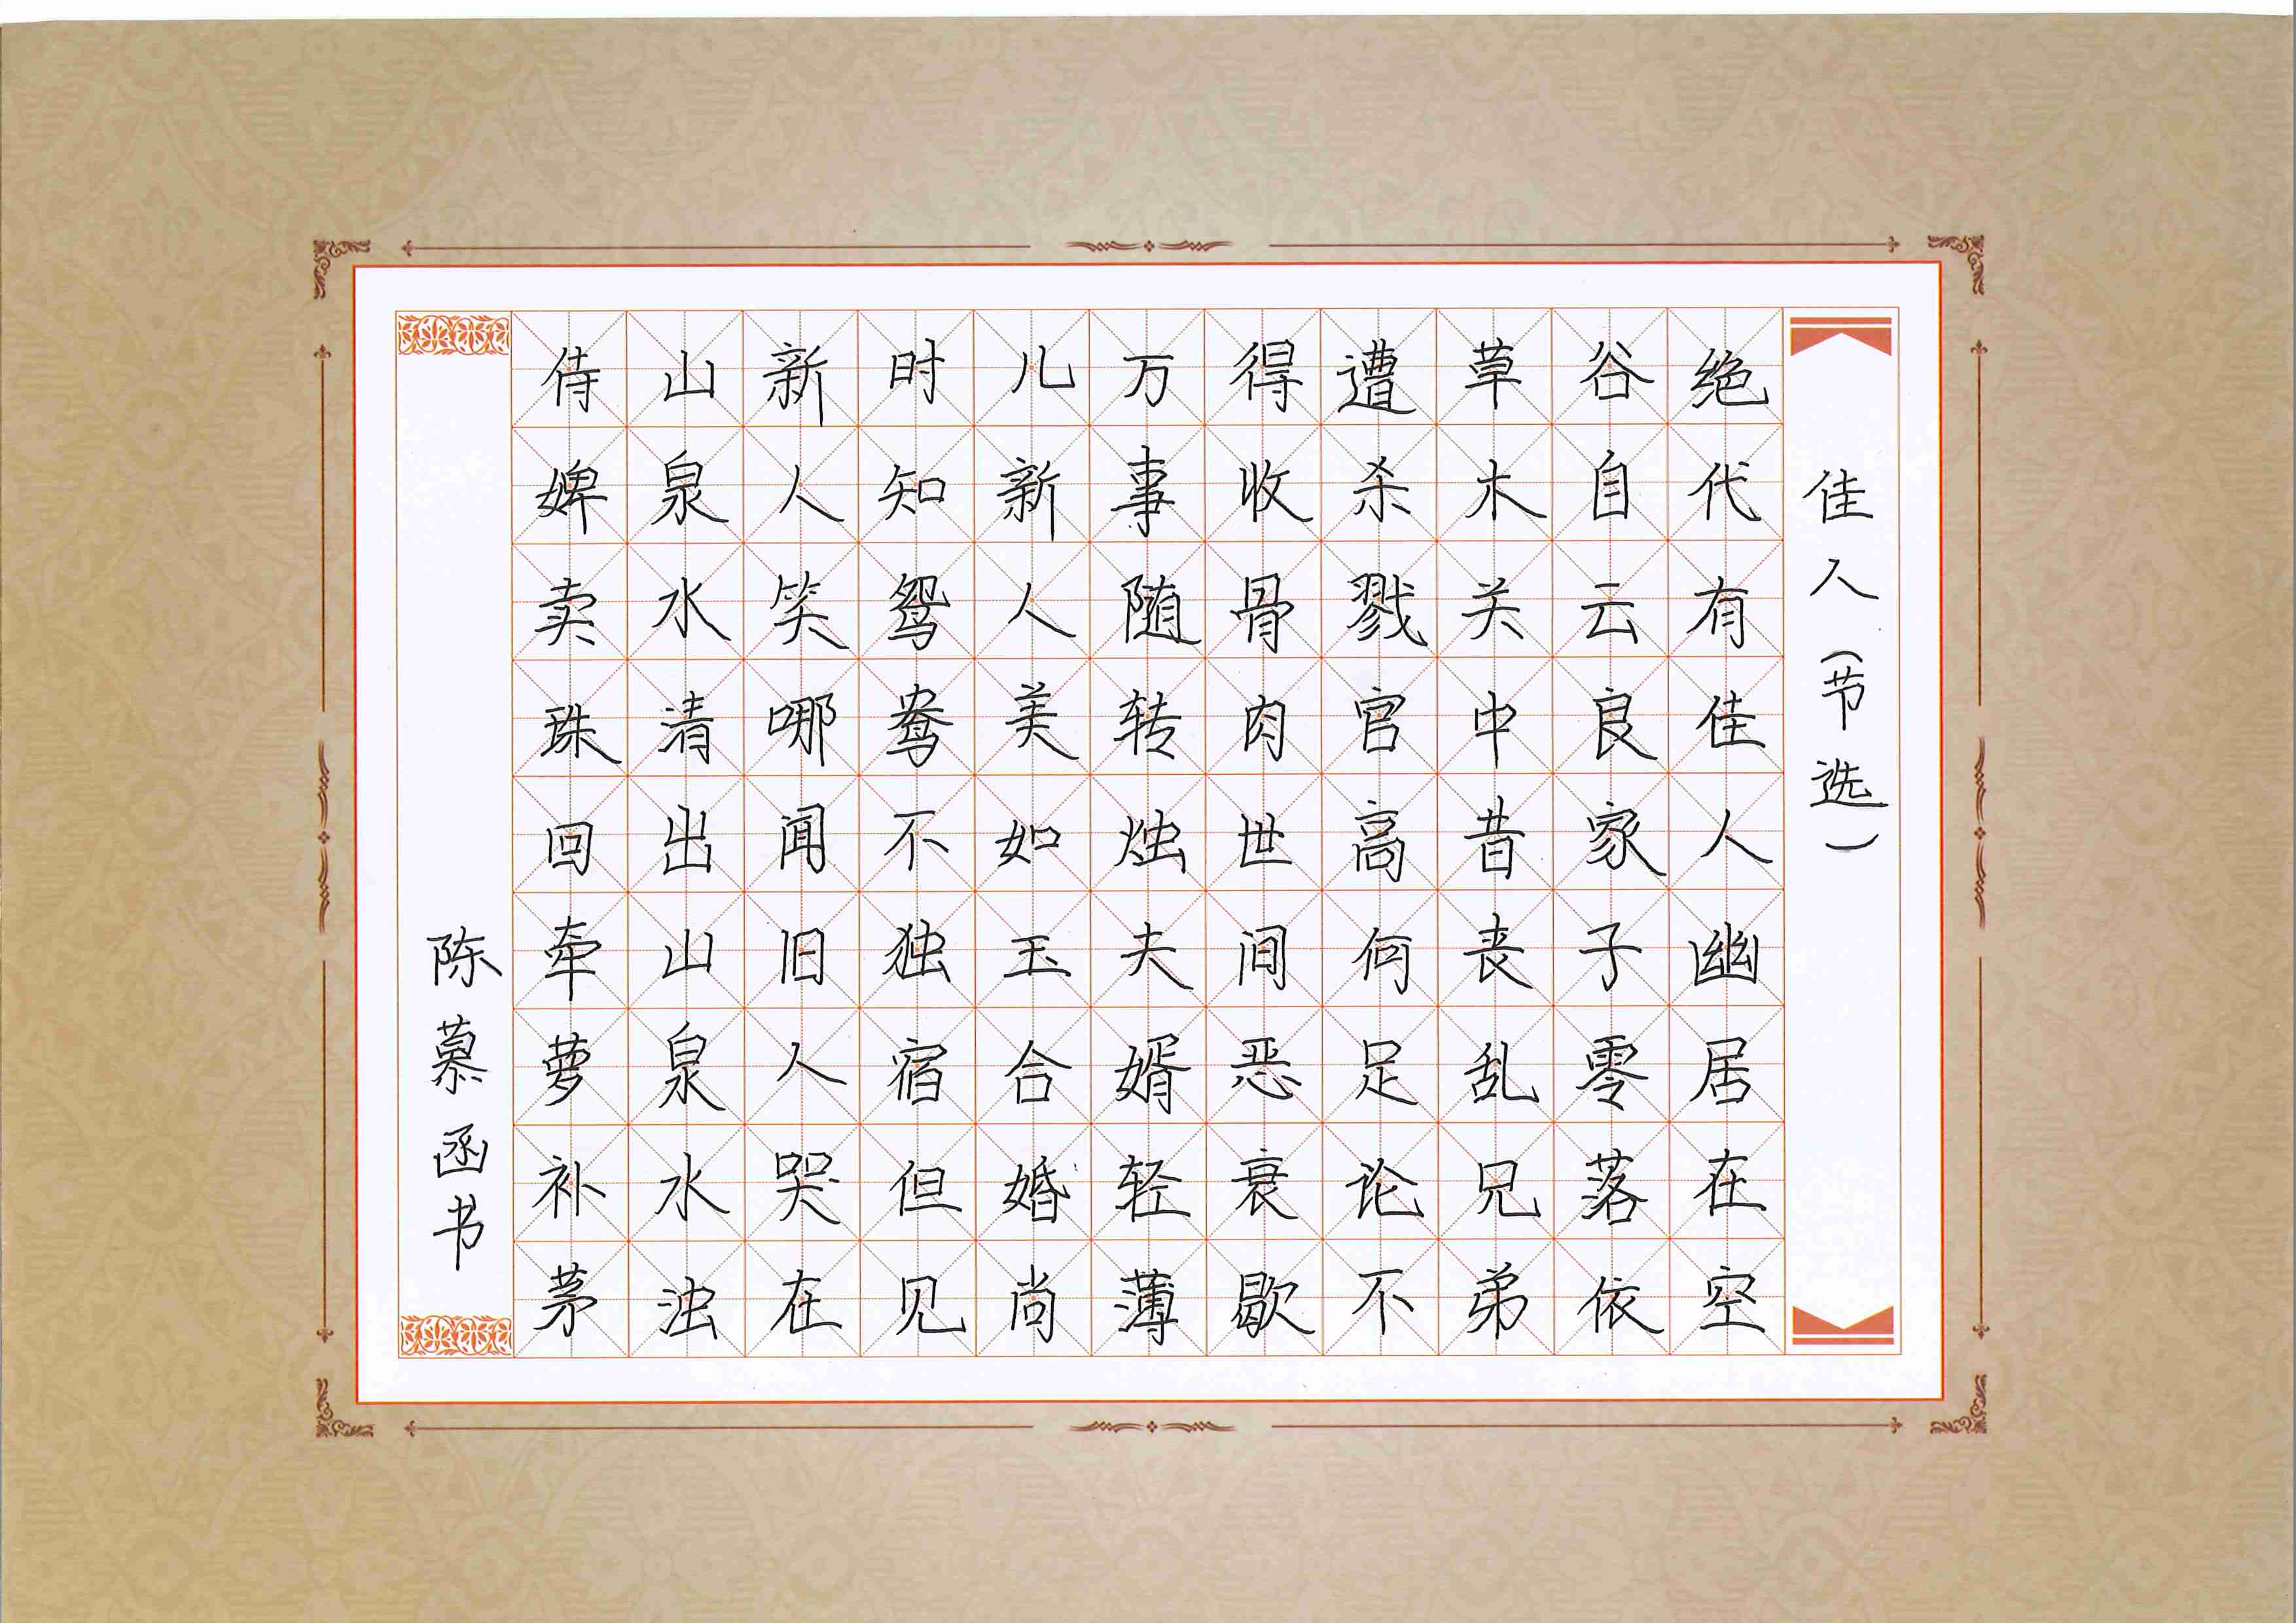 佳人（节选）
绝代有佳人幽居在空
谷自云良家子零落依
草木关中昔丧乱兄弟
遭杀戮官高何足论不
得收骨肉世间恶衰歇
万事随转烛夫婿轻薄
儿新人美如玉合婚尚
时知鸳鸯不独宿但见
新人笑哪闻旧人哭在
山泉水清出山泉水浊
侍婢卖珠回牵萝补茅
陈慕函书